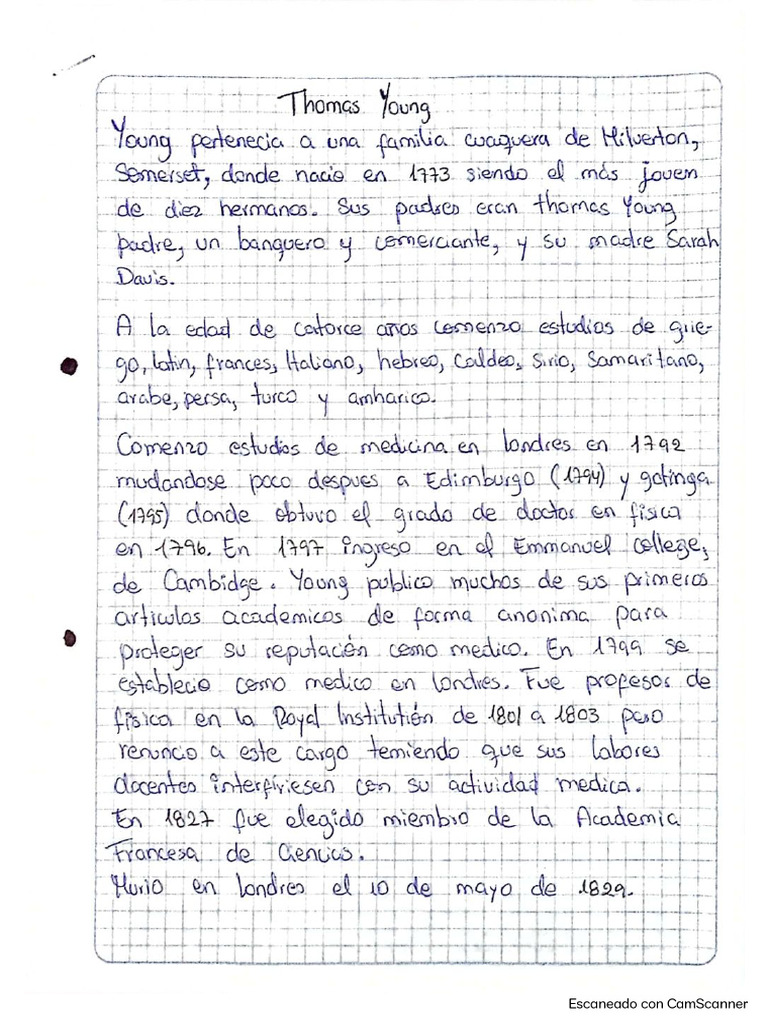 Thomas Young
Young pertenecia a una familia cuaquera de Milverton,
Somerset, donde nacio en 1773 siendo el más joven
de diez hermanos. Sus padres eran thomas Young
padre, un banquero y comerciante, y su madre Sarah
Davis.
A la edad de catorce años comenzo estudios de grie-
go, latin, frances, Italiano, hebreo, Caldeo, Sirio, Samaritano,
arabe, persa, turco y amharico.
Comenzo estudios de medicina en londres en 1792
mudandose poco despues a Edimburgo (1794) y gotinga
(1795) donde obtuvo el grado de doctor en fisica
en 1796. En 1797 ingreso en el Emmanuel college,
de Cambidge. Young publico muchos de sus primeros
articulos academicos de forma anonima para
proteger su reputación como medico. En 1799 se
establecio como medico en londres. Fue profesor de
fisica en la Royal Institutión de 1801 a 1803 pero
renunco a este cargo temiendo que sus labores
docentes interfiriesen con su actividad medica.
En 1827 fue elegido miembro de la Academia
Francesa de Ciencias.
Murio en londres el 10 de mayo de 1829.
Escaneado con CamScanner